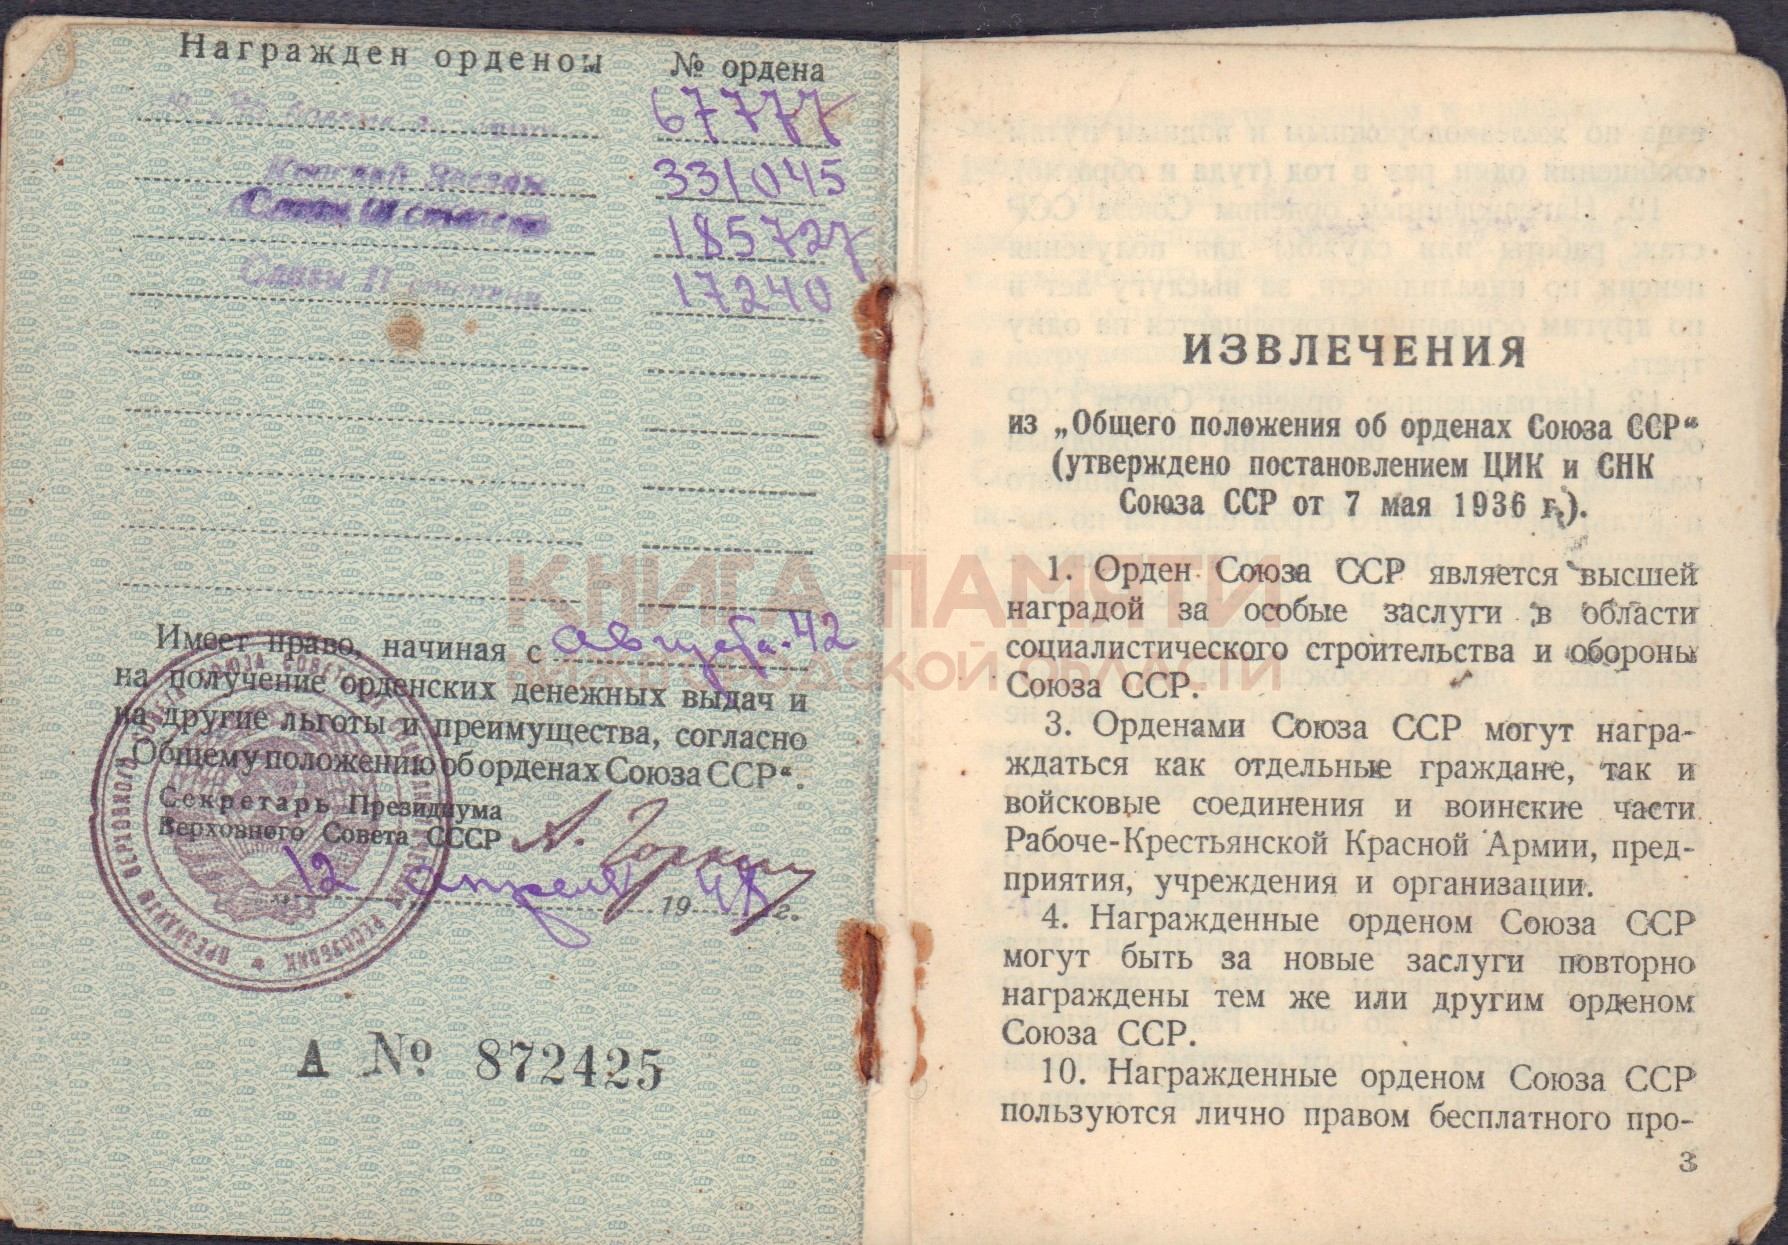 Награжден орденом № ордена
67777
Красной Звезды 331045
Славы III степени 185727
Славы II степени 17240
Имеет право, начиная с августа-42
на получение орденских денежных выдач и
на другие льготы и преимущества, согласно
„Общему положению об орденах Союза ССР“.
Секретарь Президиума
Верховного Совета СССР А. Горкин
12 апреля 19 г.
А № 872425
ИЗВЛЕЧЕНИЯ
из „Общего положения об орденах Союза ССР“
(утверждено постановлением ЦИК и СНК
Союза ССР от 7 мая 1936 г.).
1. Орден Союза ССР является высшей
наградой за особые заслуги в области
социалистического строительства и обороны
Союза ССР.
3. Орденами Союза ССР могут награ-
ждаться как отдельные граждане, так и
войсковые соединения и воинские части
Рабоче-Крестьянской Красной Армии, пред-
приятия, учреждения и организации.
4. Награжденные орденом Союза ССР
могут быть за новые заслуги повторно
награждены тем же или другим орденом
Союза ССР.
10. Награжденные орденом Союза ССР
пользуются лично правом бесплатного про-
3
КНИГА ПАМЯТИ
НИЖЕГОРОДСКОЙ ОБЛАСТИ